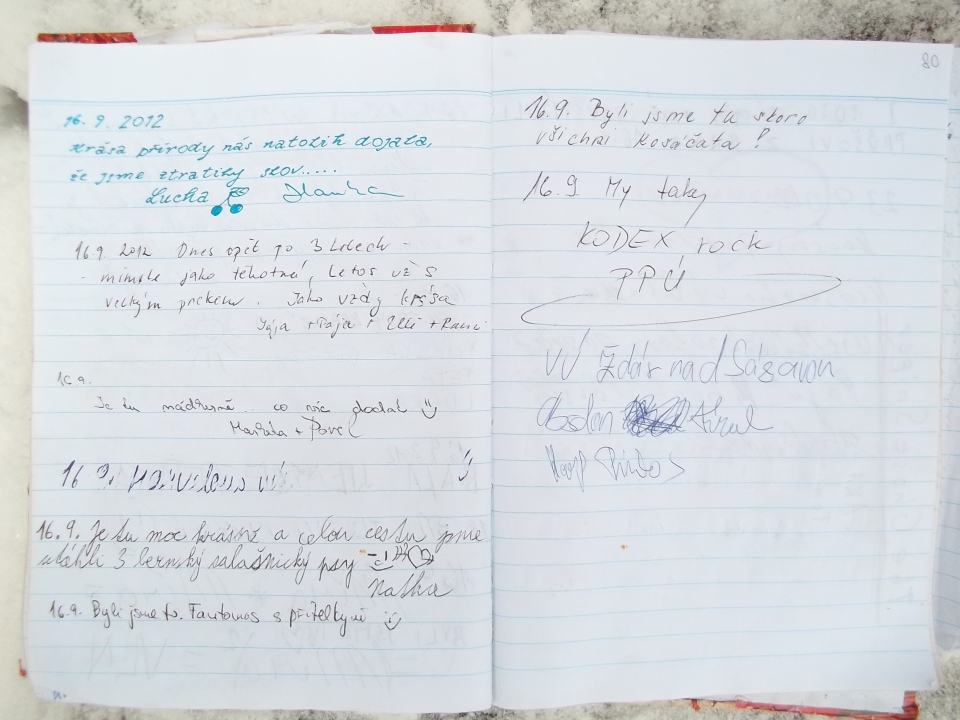 16. 9. 2012
Krása přírody nás natolik dojala,
že jsme ztratily slov.....
Lucka Hanka
16 9 2012 Dnes opět po 3 letech -
- minule jako těhotná, letos už s
velkým prckem. Jako vždy krása
+ Pája +
16 9.
Je tu nádherně.. co víc dodat
Markéta + Pavel
16 9.
16. 9. Je tu moc krásně a celou cestu jsme
utáhli 3 bernský salašnický psy
16.9. Byli jsme tu. Fantomas s přítelkyní
80
16.9. Byli jsme tu skoro
všichni Kosáčata!
16.9 My taky
KODEX rock
PPÚ
VV Ždár nad Sásavou